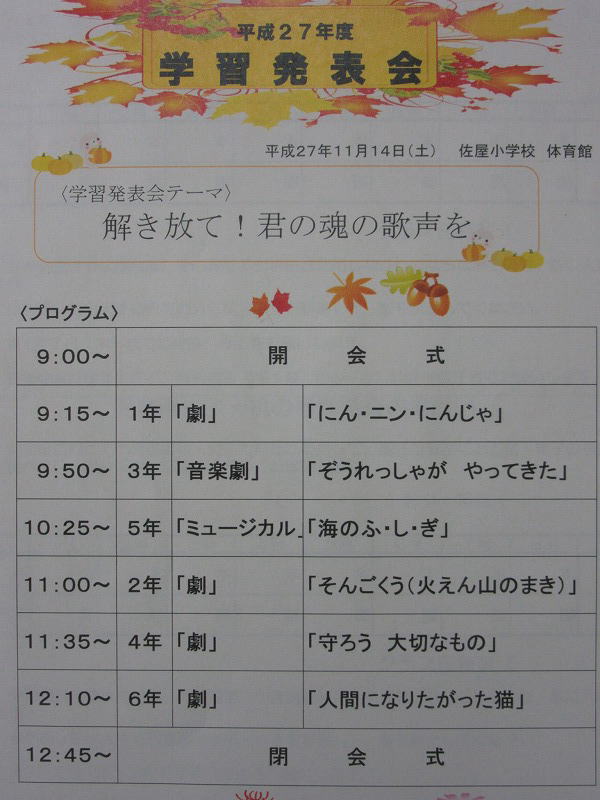 平成27年度
学習発表会
平成27年11月14日(土) 佐屋小学校 体育館
〈学習発表会テーマ〉
解き放て！君の魂の歌声を
〈プログラム〉
9:00～ 開会式
9:15～ 1年 「劇」 「にん・ニン・にんじゃ」
9:50～ 3年 「音楽劇」 「ぞうれっしゃが やってきた」
10:25～ 5年 「ミュージカル」 「海のふ・し・ぎ」
11:00～ 2年 「劇」 「そんごくう(火えん山のまき)」
11:35～ 4年 「劇」 「守ろう 大切なもの」
12:10～ 6年 「劇」 「人間になりたがった猫」
12:45～ 閉会式